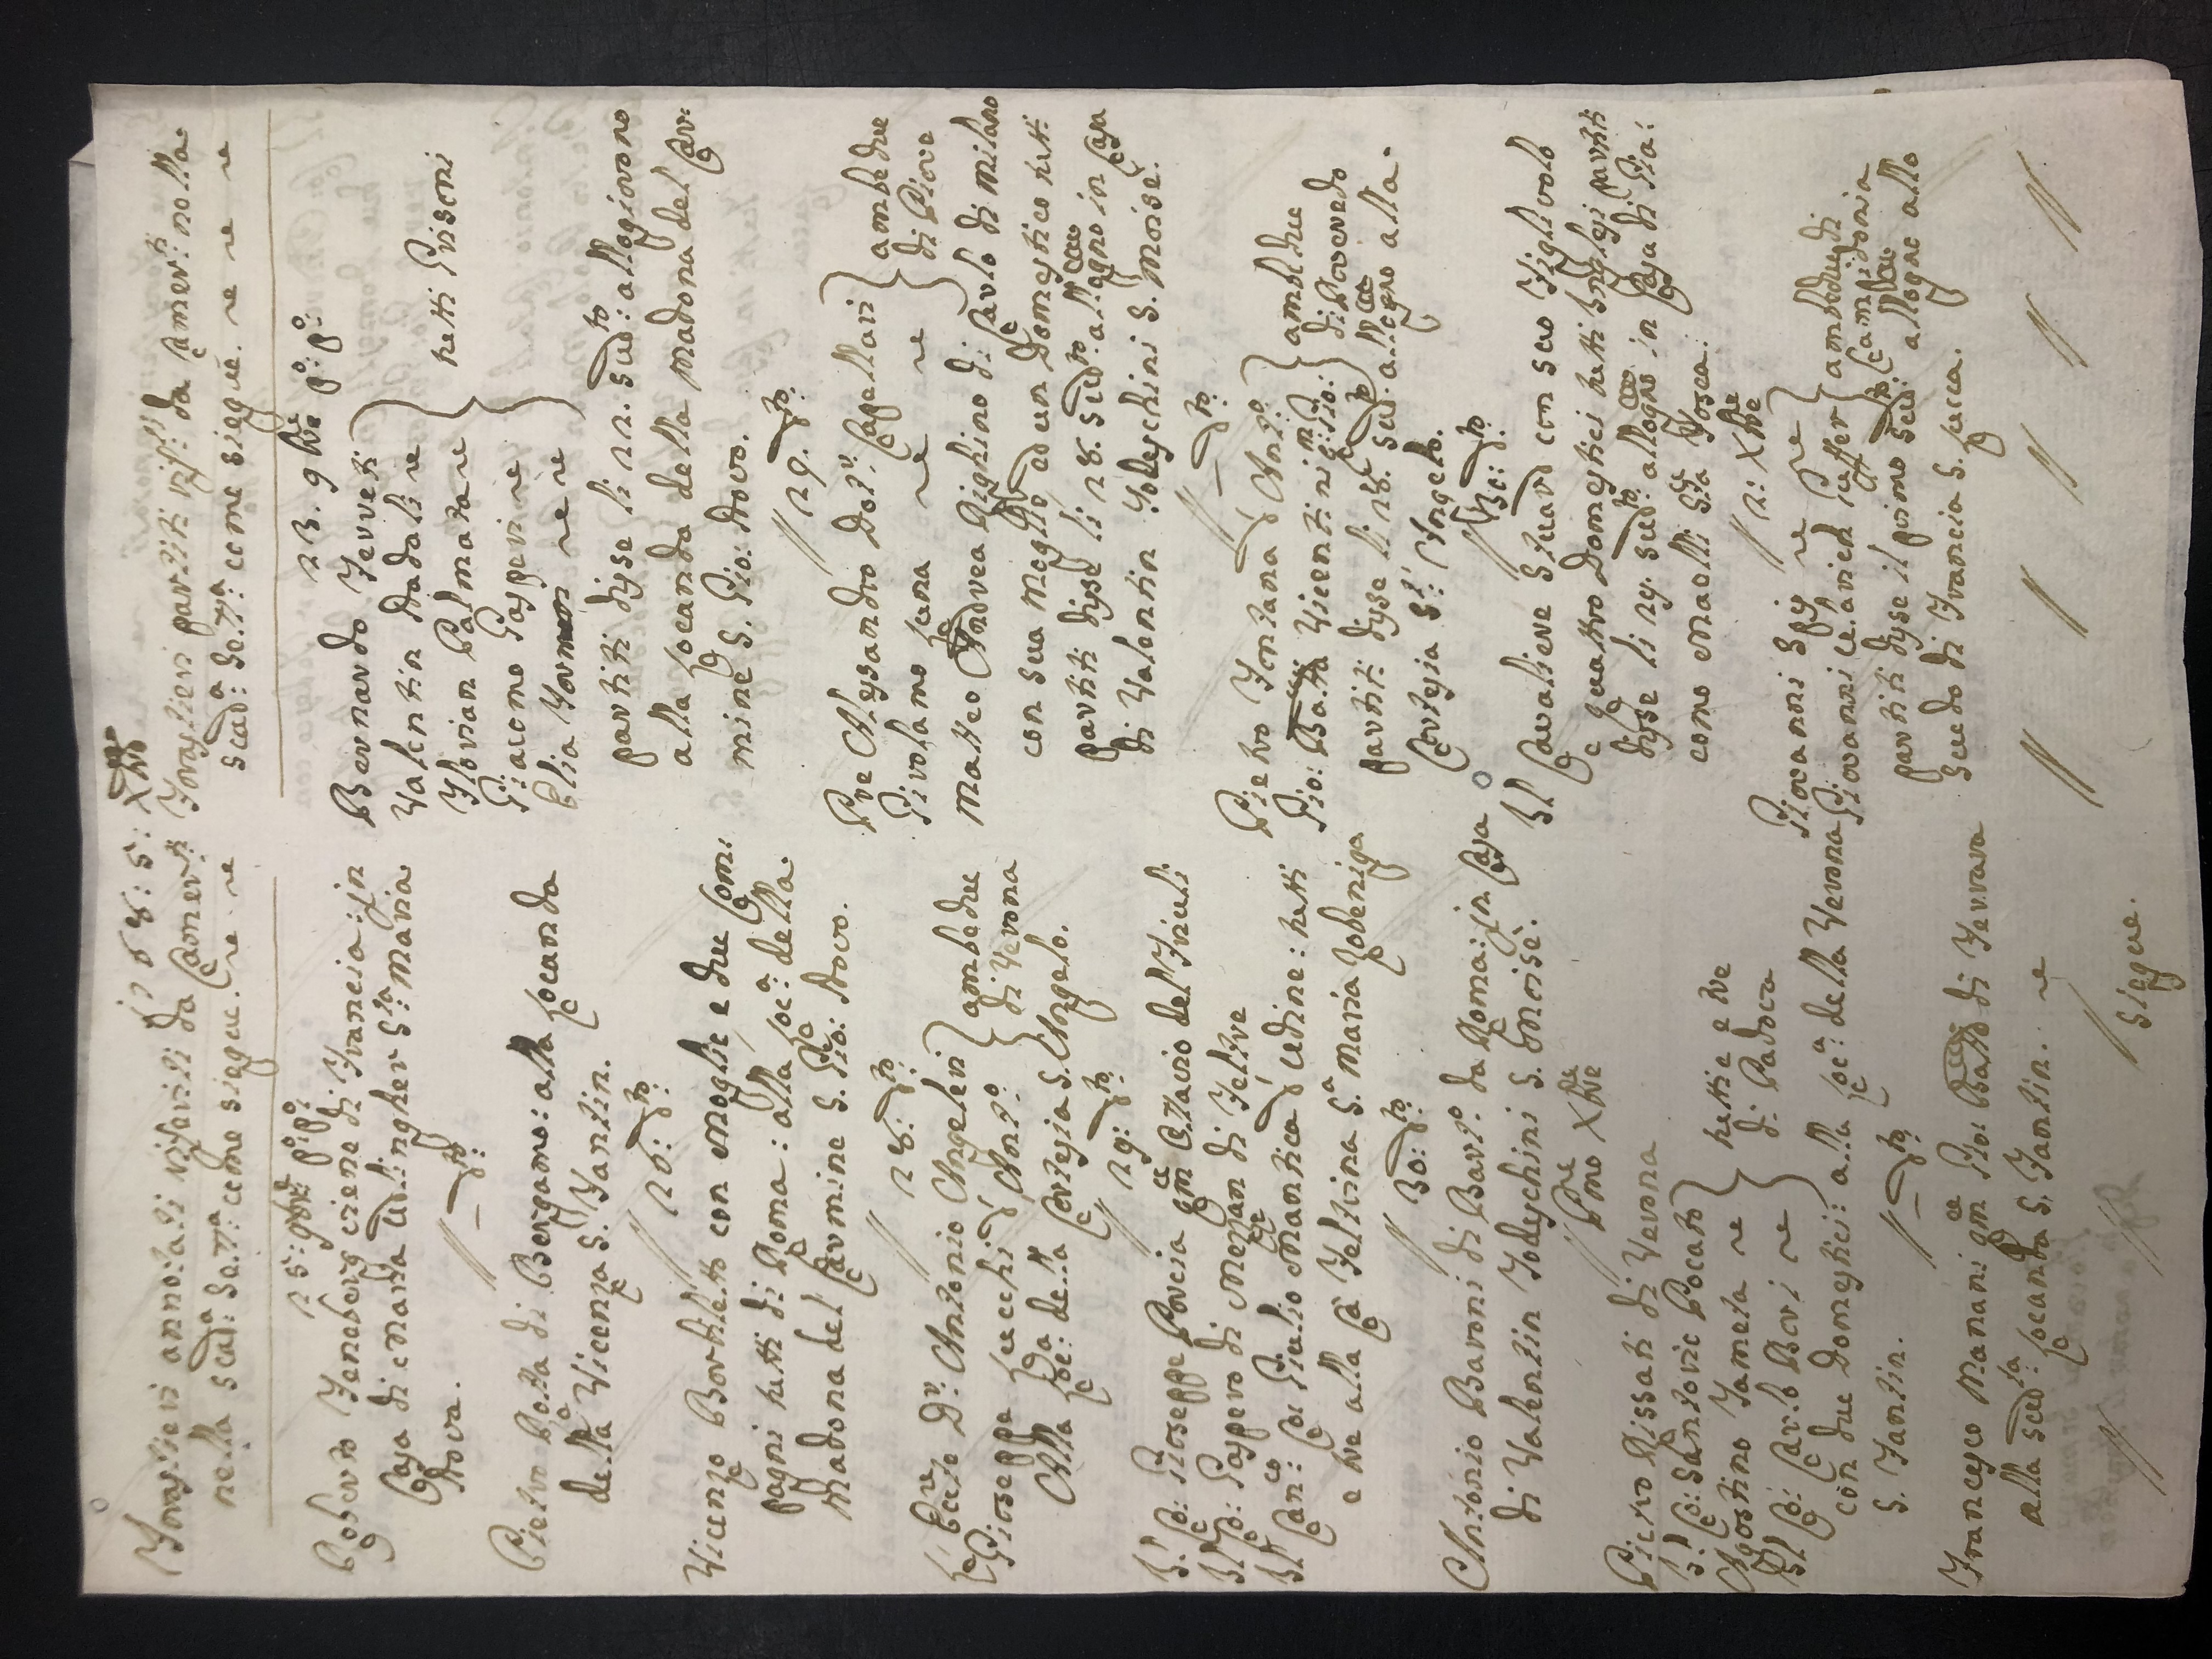 1768: 5: Xbre
Forastieri annotati riferiti da Camerti
nella scada: Setta: come siegue.
25: 9bre: po:po:
Roberto Feneberg viene di Francia: in
Casa di Maria Udlingher Sta: Maria
Nova.
// – dto:
Pietro Rotta di Bergamo: alla Locanda
della Vicenza S. Fantin.
// 26: dto:
Vicenzo Bortiletto con Moglie, e due Com:
pagni tutti di Roma: alla Loca: della
Madona del Carmine S. Gio: Novo.
// 28: dto:
L' Eccte Dr: Antonio Angeleri } ambedue
Gioseppe Lucchi d' Anto: } di Verona
Alla Loca: della Cortesia S. Angelo.
// 29: dto:
Il Co: Gioseppe Porcia qm Ottavio del Friuli
Il Co: Gaspero di Mezzan di Feltre
Il Canco: Co: Giulio Mantica d' Udine: tutti
e tre alla Cà Feltrina Sa. Maria Zobeniga
// 30: dto:
Antonio Baroni di Barto: da Roma: in Casa
di Valentin Todeschini S. Moisè.
// Pmo Xbre
Pietro Rissati di Verona
Il Co: Santorio Pocato
Agostino Fameta
Il Co: Carlo Bori
} tutti e tre
di Padova
con due Domestici: alla Loca: della Verona
S. Fantin.
// – dto:
Francesco Manani qm Gio: Batta di Ferrara
alla sudta: Locanda S. Fantin.
// // // siegue.
Forastieri partiti rifti: da Camerti: nella
scada: Setta: come siegue.
23. 9bre po: po:
Bernardo Ferreti
Valentin Nadali
Florian Palmata
Giacomo Gasperi
Elia Formen
} tutti Grisoni
partiti disse li 22. sudto: allogiorono
alla Locanda della Madona del Car:
mine S. Gio: Novo.
// 29. dto:
Pre Alessandro Dotr: Capellari } ambedue
Girolamo Luna } di Piove
Matteo Andrea Righino di Carlo di Milano
con sua Moglie, ed un Domestico tutti
partiti disse li 28. sudto: allogno in Casa
di Valentin Todeschini S. Moisè.
// – dto:
Pietro Fontana d' Anto: } ambedue
Gio: Batta Vicentini qm: Gio: } di Roveredo
partiti disse li 28. sudto: allogno alla
Cortesia St: Angelo.
// 30: dto:
Il Cavaliere Stuard con suo Figlivolo
e quattro Domestici tutti Inglesi partiti
disse li 29. sudto: allogno in Casa di Gia:
como Maelli Sta Fosca:
// 2: Xbre
Giovanni Spij
Giovanni Ularich Puffer } ambedue di
Campidonia
partiti disse il primo sudto: allogno allo
scudo di Francia S. Lucca.
// // // // //